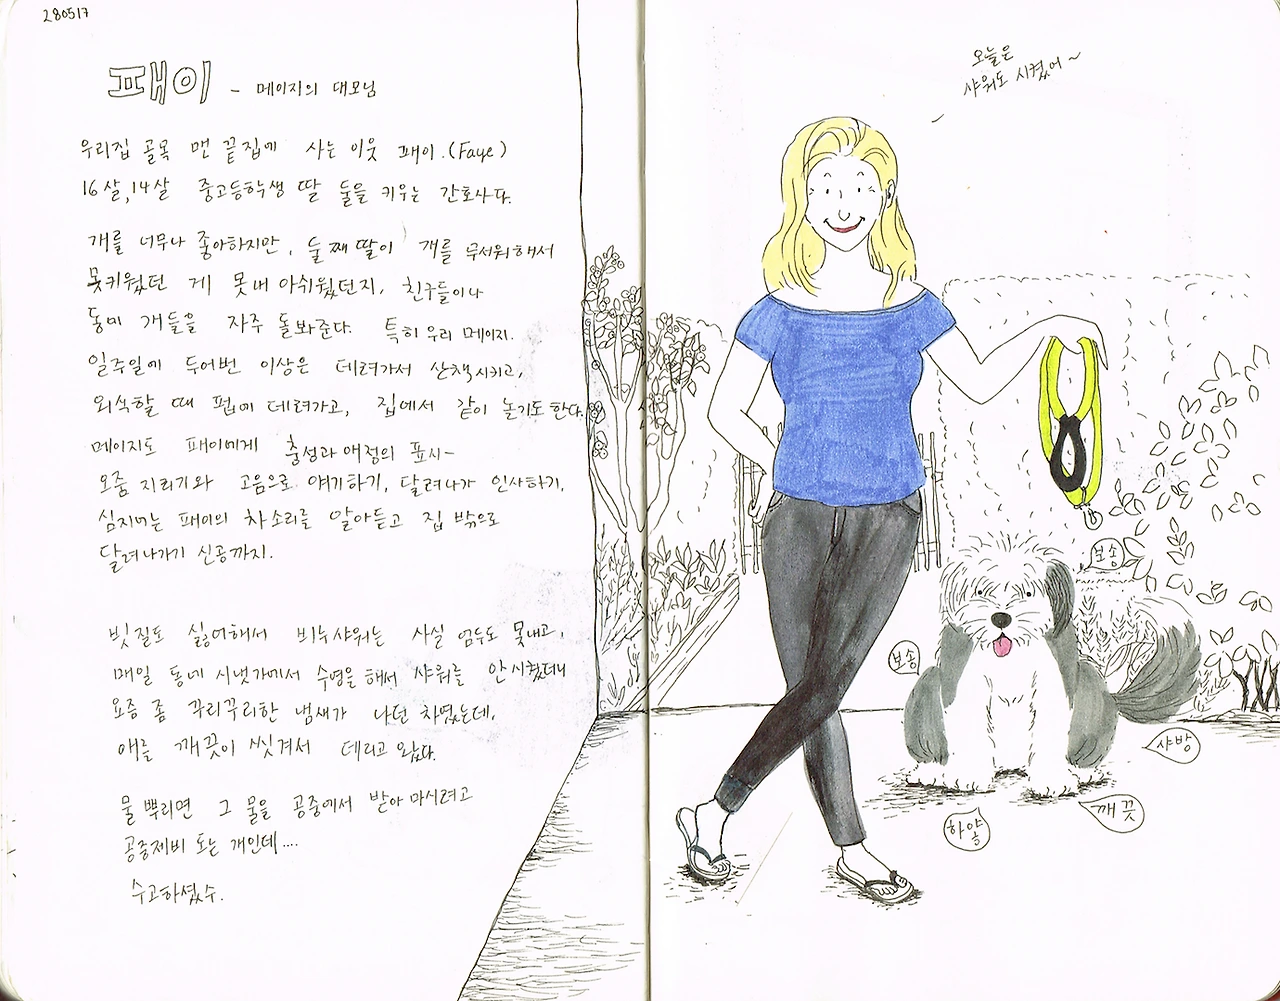 280517
패이 - 메이지의 대모님
우리집 골목 맨 끝집에 사는 이웃 패이.(Faye)
16살,14살 중고등학생 딸 둘을 키우는 간호사다.
개를 너무나 좋아하지만, 둘째 딸이 개를 무서워해서
못키웠던 게 못내 아쉬웠던지, 친구들이나
동네 개들을 자주 돌봐준다. 특히 우리 메이지.
일주일에 두어번 이상은 데려가서 산책시키고,
외식할 때 펍에 데려가고, 집에서 같이 놀기도 한다.
메이지도 패이에게 충성과 애정의 표시-
오줌 지리기와 고음으로 얘기하기, 달려나가 인사하기,
심지어는 패이의 차소리를 알아듣고 집 밖으로
달려나가기 신공까지.
빗질도 싫어해서 비누샤워는 사실 엄두도 못내고,
매일 동네 시냇가에서 수영을 해서 샤워를 안시켰더니
요즘 좀 꾸리꾸리한 냄새가 나던 차였는데,
애를 깨끗이 씻겨서 데리고 왔다.
물 뿌리면 그 물을 공중에서 받아 마시려고
공중제비 도는 개인데....
수고하셨수.
오늘은
샤워도 시켰어~
보송
보송
샤방
깨끗
하얌